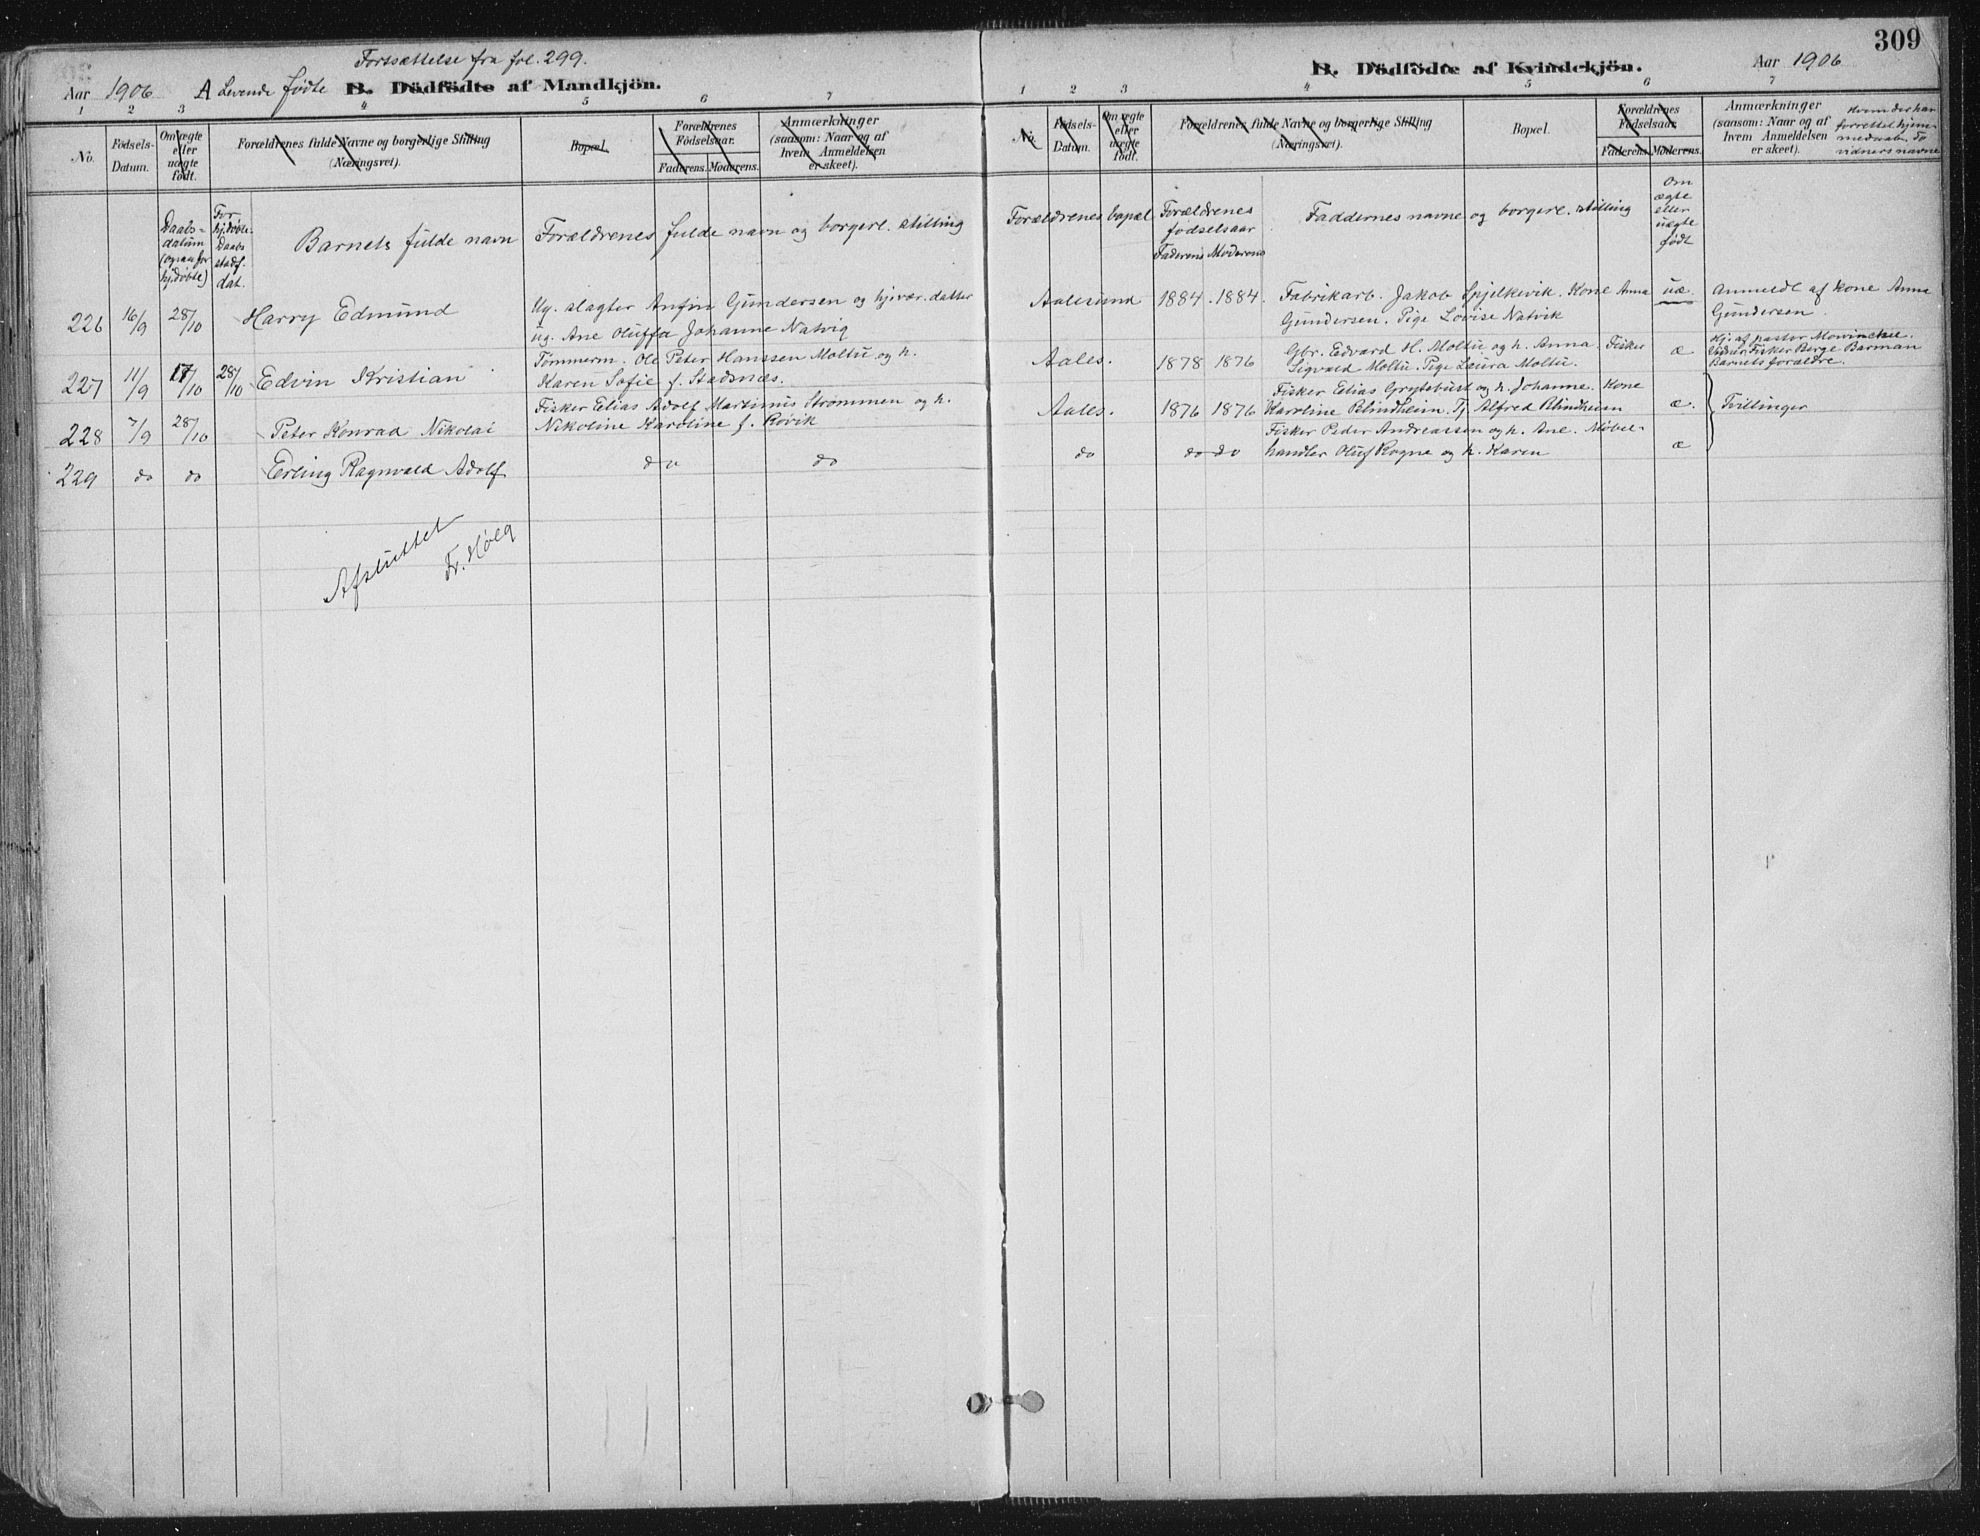 309
Fortsættelse fra fol. 299.
Aar 1906 A Levende fødte B. Dödfödte af Mandkjön.
B. Dödfödte af Kvindekjön. Aar 1906
1 2 3 4 5 6 7
1 2 3 4 5 6 7
No. Födsels-Datum. Om ægte eller uægte födt. Forældrenes fulde Navne og borgerlige Stilling (Næringsvei). Bopæl. Forældrenes Födselsaar. Faderens. Moderens. Anmærkninger (saasom: Naar og af hvem Anmeldelsen er skeet).
No. Födsels-Datum. Om ægte eller uægte födt. Forældrenes fulde Navne og borgerlige Stilling (Næringsvei). Bopæl. Forældrenes Födselsaar. Faderens. Moderens. Anmærkninger (saasom: Naar og af hvem Anmeldelsen er skeet). Hvem der har forrettet hjemmedaab, do vidners navne
Daabs-datum (ogsaa for hj.døbte) For hj.døbte: Daabs stadf. dat. Barnets fulde navn Forældrenes fulde navn og borgerl. stilling
Forældrenes bopæl Forældrenes fødselsaar Faderens Moderens Faddernes navne og borgerl. stilling Om ægte eller uægte født
226 16/9 28/10 Harry Edmund Ug. slagter Anfin Gundersen og hjevær. datter
ug. Ane Oluffa Johanne Natvig
Aalesund 1884. 1884. Fabrikarb. Jakob Spjelkevik. Kone Anna
Gundersen. Pige Lovise Natvik
uæ. Anmeldt af kone Anna
Gundersen.
227 11/9 17/10 28/10 Edvin Kristian Tømmerm. Ole Peter Hanssen Moltu og h.
Karen Sofie f. Stadsnæs.
Aales. 1878 1876 Gbr. Edvard H. Moltu og h. Anna. Fisker
Sigvald Moltu. Pige Laura Moltu.
æ Hj. af pastor Mowinckel.
Vidner: Fisker Berge Barman
Barnets forældre.
228 7/9 28/10 Peter Konrad Nikolai Fisker Elias Adolf Martinus Strømmen og h.
Nikoline Karoline f. Røvik
Aales. 1876 1876 Fisker Elias Grytebust og h. Johanne. Kone
Karoline Blindheim. Tj. Alfred Blindheim
æ. Tvillinger
229 do do Erling Ragnvald Adolf do do
do do do Fisker Peder Andreassen og h. Ane. Møbel-
handler Oluf Rogne og h. Karen
æ
Afsluttet
Fr. Hölq